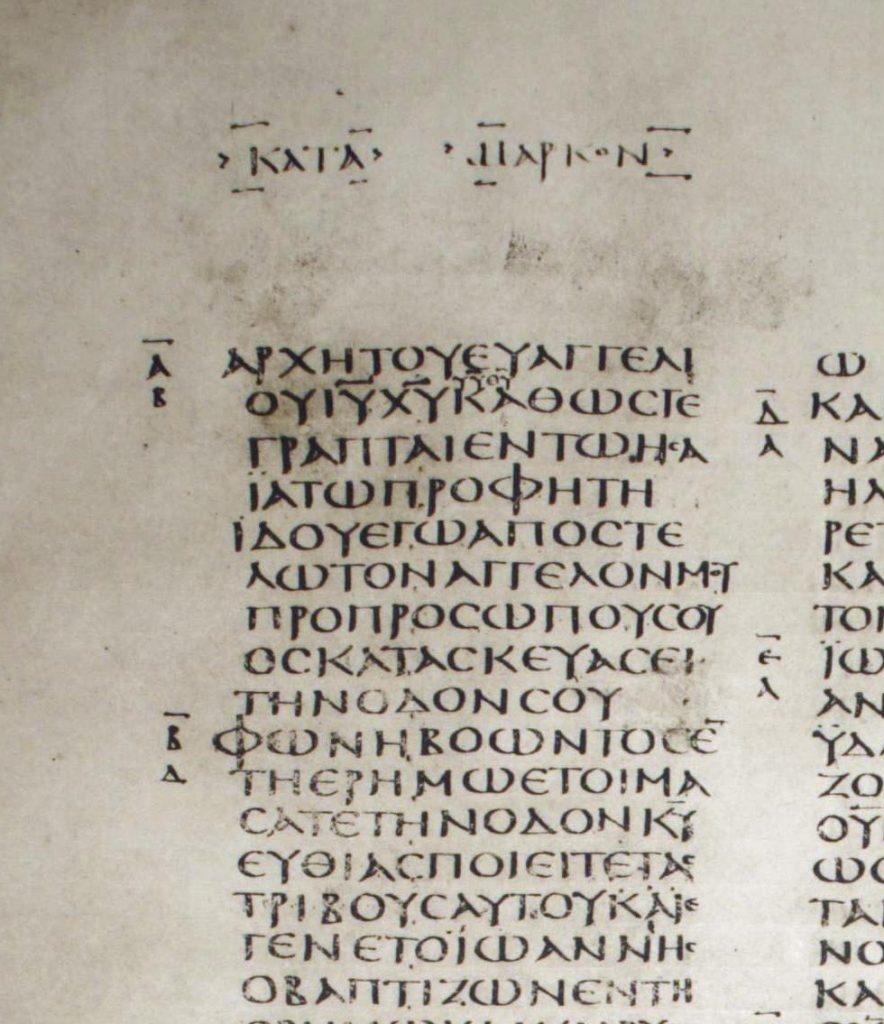 ΚΑΤΑ ΜΑΡΚΟΝ
Α ΑΡΧΗΤΟΥΕΥΑΓΓΕΛΙ
Β ΟΥΙ̅Υ̅Χ̅Υ̅ΚΑΘΩСΓΕ
ΓΡΑΠΤΑΙΕΝΤΩΗСΑ
ΪΑΤΩΠΡΟΦΗΤΗ
ΙΔΟΥΕΓΩΑΠΟСΤΕ
ΛΩΤΟΝΑΓΓΕΛΟΝΜΟΥ
ΠΡΟΠΡΟСΩΠΟΥСΟΥ
ΟСΚΑΤΑСΚΕΥΑСΕΙ
ΤΗΝΟΔΟΝСΟΥ
Β ΦΩΝΗΒΟΩΝΤΟСΕ̅
Δ ΤΗΕΡΗΜΩΕΤΟΙΜΑ
СΑΤΕΤΗΝΟΔΟΝΚ̅Υ̅
ΕΥΘΙΑСΠΟΙΕΙΤΕΤΑС
ΤΡΙΒΟΥСΑΥΤΟΥΚΑΙ
ΓΕΝΕΤΟΪΩΑΝΝΗС
ΟΒΑΠΤΙΖΩΝΕΝΤΗ
Ω
Δ ΚΑ
Α ΝΑ
ΗΛ
ΡΕΤ
ΚΑ
ΤΟ
Ε ΪΩ
Α ΑΝ
ΫΔΑ
ΖΟ
ΟΥ
ΩС
ΤΑΙ
ΝΟ
ΚΑ